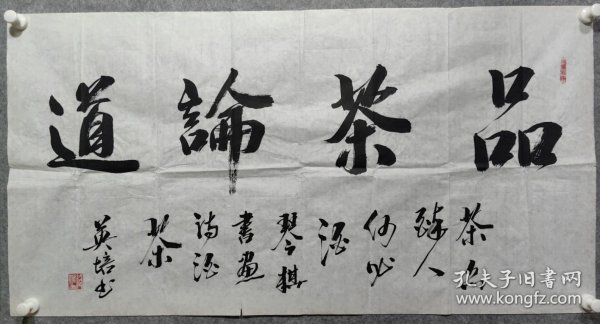 品茶論道
茶亦
醉人
何必
酒
琴棋
書畫
詩酒
茶
英培书
孔夫子旧书网
www.kongfz.com